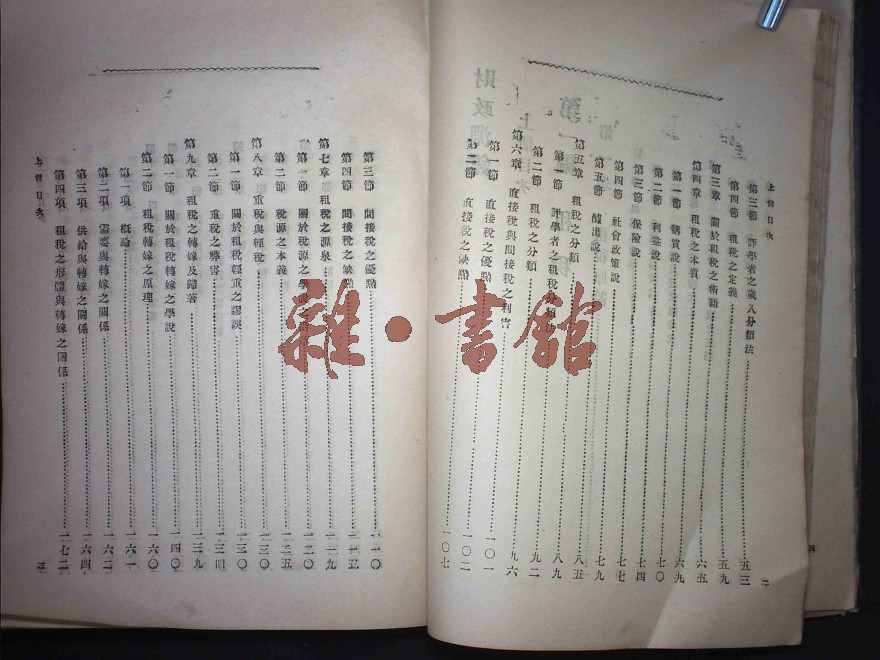 上冊目次
第三節 評學者之歲入分類法 五三
第四節 租稅之定義 五九
第三章 關於租稅之術語 六五
第四章 租稅之本質 六九
第一節 購買說 六九
第二節 利益說 七〇
第三節 保險說 七四
第四節 社會政策說 七七
第五節 醵出說 七九
第五章 租稅之分類 八五
第一節 評學者之租稅分類法 八九
第二節 租稅之分類 九二
第六章 直接稅與間接稅之利害 九六
第一節 直接稅之優點 一〇一
第二節 直接稅之缺點 一〇二
一〇七
二
第三節 間接稅之優點 一一〇
第四節 間接稅之缺點 一一五
第七章 租稅之源泉 一一九
第一節 關於稅源之學說 一二〇
第二節 稅源之本義 一二五
第八章 重稅與輕稅 一三〇
第一節 關於租稅輕重之謬誤 一三〇
第二節 重稅之弊害 一三四
第九章 租稅之轉嫁及歸著 一三九
第一節 關於租稅轉嫁之學說 一四〇
第二節 租稅轉嫁之原理 一六〇
第一項 概論 一六一
第二項 需要與轉嫁之關係 一六二
第三項 供給與轉嫁之關係 一六四
第四項 租稅之形體與轉嫁之關係 一七二
上冊目次
三
雜·書館